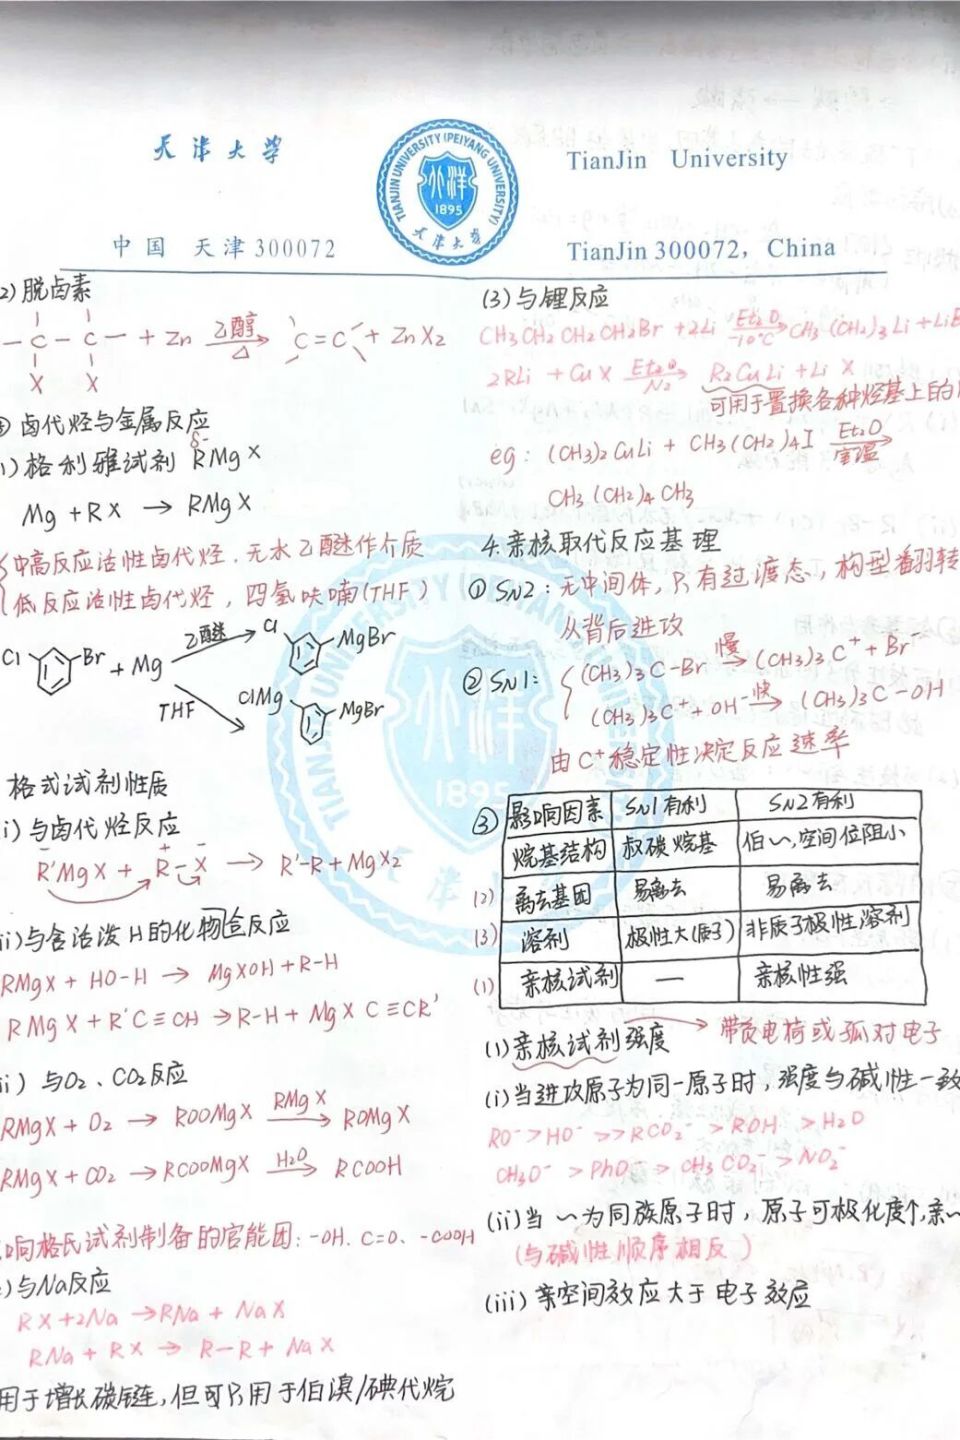 天津大学
TIANJIN UNIVERSITY (PEIYANG UNIVERSITY)
北洋
1895
天津大学
TianJin University
中国 天津 300072
TianJin 300072, China
2) 脱卤素
-C-C- + Zn 乙醇 △ → C=C + ZnX2
X X
卤代烃与金属反应
1) 格利雅试剂 δ- RMgX
Mg + RX → RMgX
中高反应活性卤代烃,无水乙醚作介质
低反应活性卤代烃,四氢呋喃(THF)
Cl Br + Mg 乙醚 → Cl MgBr
THF → ClMg MgBr
格式试剂性质
i) 与卤代烃反应
R'MgX + R-X → R'-R + MgX2
ii) 与含活泼H的化物合反应
RMgX + HO-H → MgXOH + R-H
RMgX + R'C≡CH → R-H + MgXC≡CR'
ii) 与O2、CO2反应
RMgX + O2 → ROOMgX RMgX → ROMgX
RMgX + CO2 → RCOOMgX H2O → RCOOH
响格氏试剂制备的官能团: -OH、C=O、-COOH
)与Na反应
RX+2Na → RNa + NaX
RNa + RX → R-R + NaX
用于增长碳链,但可只用于伯溴/碘代烷
(3) 与锂反应
CH3CH2CH2CH2Br + 2Li Et2O -10℃ → CH3(CH2)3Li + LiB
2RLi + CuX Et2O N2 → R2CuLi + LiX
可用于置换各种烃基上的
eg: (CH3)2CuLi + CH3(CH2)4I Et2O 室温 →
CH3(CH2)4CH3
4. 亲核取代反应基理
① SN2: 无中间体,只有过渡态,构型翻转
从背后进攻
② SN1: (CH3)3C-Br 慢 → (CH3)3C+ + Br-
(CH3)3C+ + OH- 快 → (CH3)3C-OH
由C+稳定性决定反应速率
③ 影响因素 SN1有利 SN2有利
烷基结构 叔碳烷基 伯~,空间位阻小
(2) 离去基团 易离去 易离去
(3) 溶剂 极性大(质子) 非质子极性溶剂
(1) 亲核试剂 — 亲核性强
(1) 亲核试剂强度 → 带负电荷或孤对电子
(i) 当进攻原子为同一原子时,强度与碱性一致
RO- > HO- >> RCO2- > ROH > H2O
CH3O- > PhO- > CH3CO2- > NO2-
(ii) 当~为同族原子时,原子可极化度↑,亲~
(与碱性顺序相反)
(iii) 亲空间效应大于电子效应